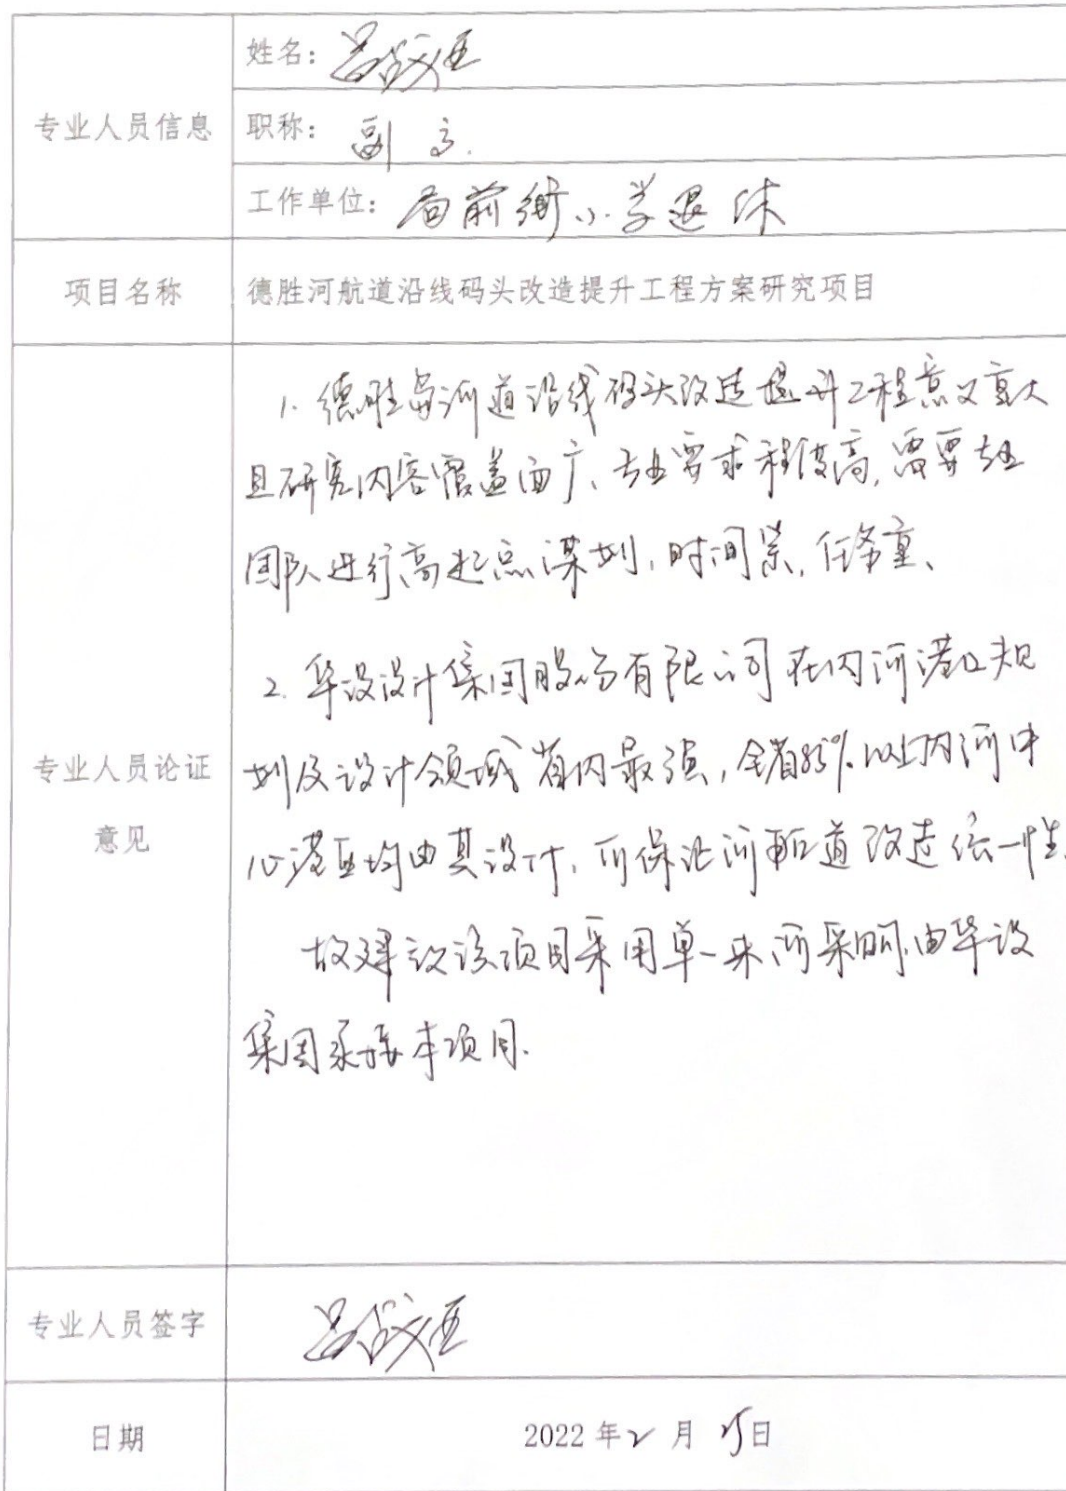 姓名:
专业人员信息
职称: 副高.
工作单位: 局前街小学退休
项目名称
德胜河航道沿线码头改造提升工程方案研究项目
1. 德胜河道沿线码头改造提升工程意义重大
且研究内容覆盖面广、专业要求程度高,需要专业
团队进行高起点谋划,时间紧,任务重、
2. 华设设计集团股份有限公司在内河港口规
划及设计领域省内最强,全省85%以上内河中
心港区均由其设计,可保证河航道改造统一性.
专业人员论证
意见
故建议该项目采用单一来源采购,由华设
集团承接本项目.
专业人员签字
日期
2022年2月25日